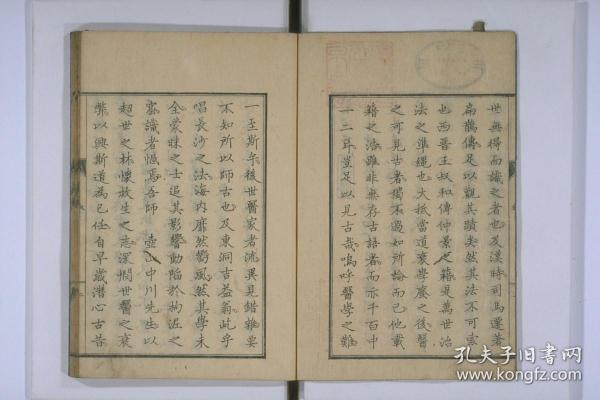 世無得而識之者也及漢時司馬遷著
扁鵲傳足以觀其蹟矣然其法不可窺
也西晋王叔和傳仲景之籍是萬世治
法之準繩也大抵當道衰學廢之後醫
之可見古者獨不過如所論而已他載
籍之浩雖非無存古語者而亦千百中
一二耳豈足以見古哉嗚呼醫學之難
一至斯乎後世醫家者流異見錯雜要
不知所以師古也及東洞吉益翁屹乎
唱長沙之法海内靡然嚮風然其學未
全蒙昧之士追其影響動陷於拘泥之
窩識者慨焉吾師 壺山中川先生以
超世之材懷救生之志深憫世醫之衰
弊以興斯道為己任自早歲潛心古昔
孔夫子旧书网
www.kongfz.com